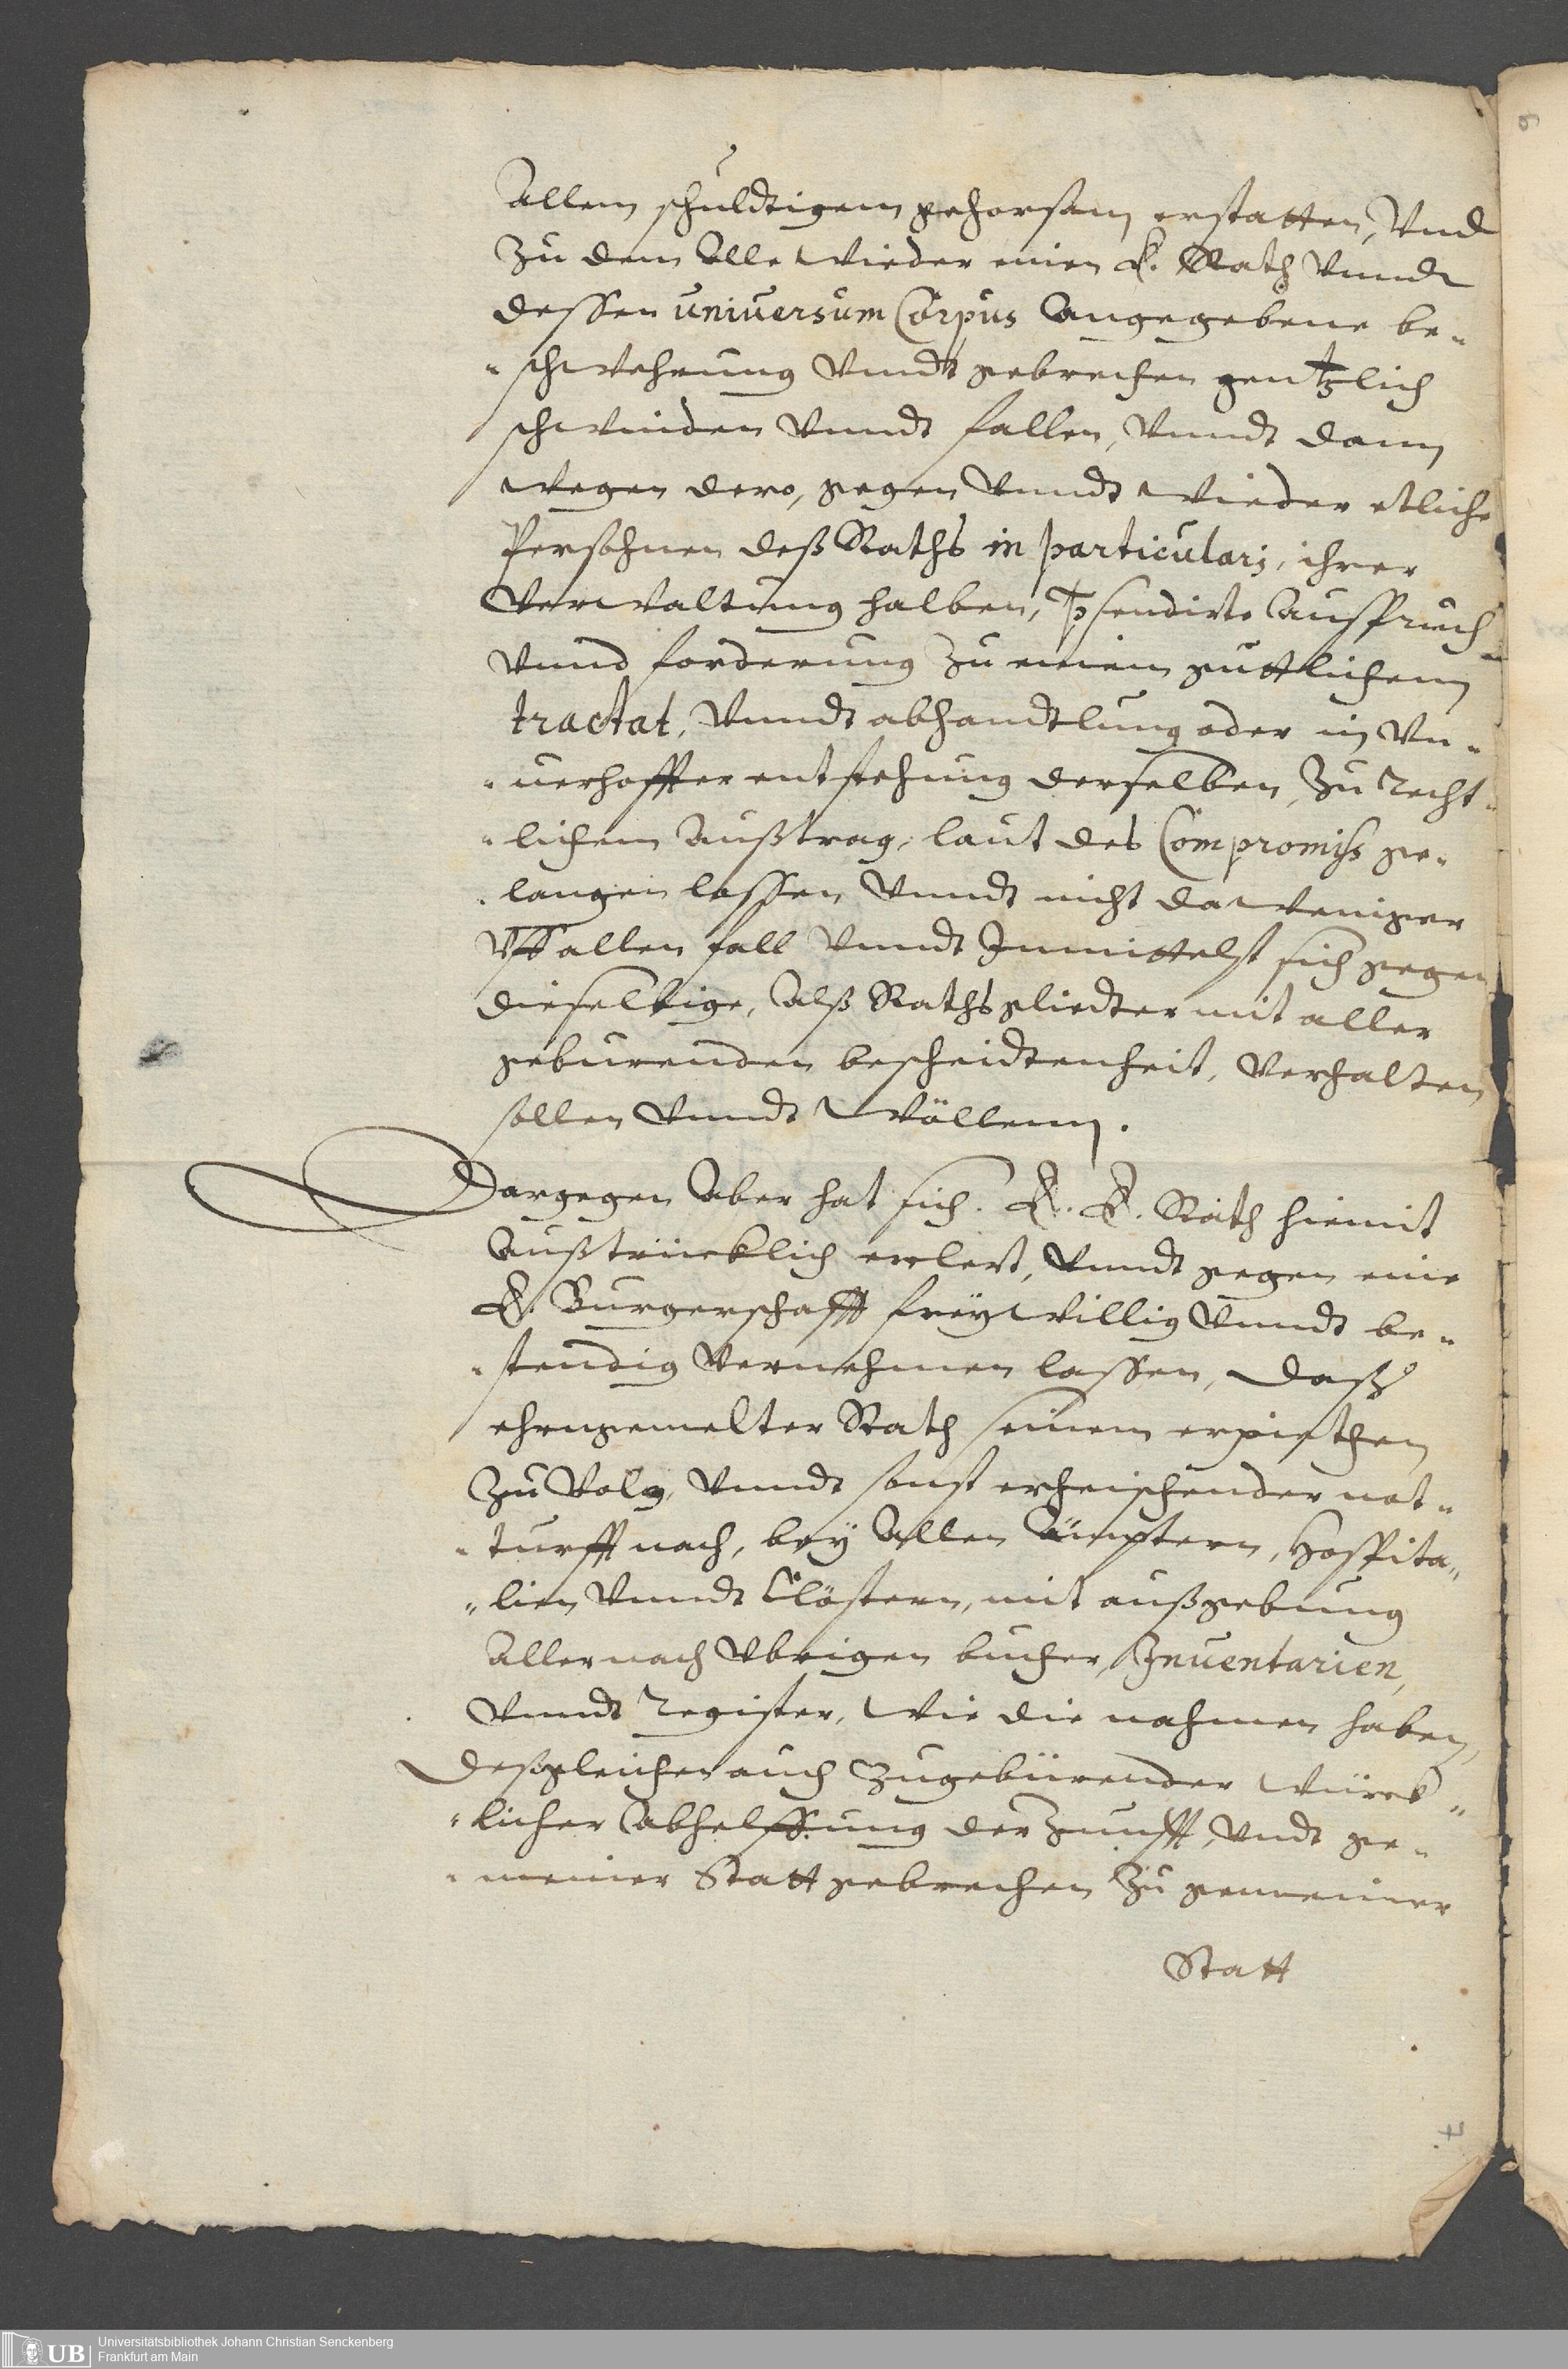 Allem schuldtigem gehorsam erstatten, Vnd
Zu dem Alle wieder einen E. Rath Vnndt
dessen universum Corpus Angegebene be-
-schwehrung Vnndt gebrechen gentzlich
schwinden Vnndt fallen, Vnndt dann
wegen dero, gegen Vnndt wieder etliche
Persohnen deß Raths in particulari, ihrer
Verwaltung halben, Anspruch
Vnnd forderung Zu einem guttlichem
tractat, Vnndt abhandtlung oder in Vn-
-uerhoffter entstehung derselben, Zu recht-
-lichem Außtrag, laut des Compromiss ge-
-langen lassen Vnndt nicht da weniger
Vff allen fall Vnndt Inmittelst sich gegen
dieselbige, Alß Rathsgliedter mit aller
geburenden bescheidtenheit, Verhalten
sollen Vnndt Wöllenn.
Dargegen Aber hat sich. E. E. Rath hiemit
Außtrücklich erclert, Vnndt gegen eine
E. Burgerschafft freywillig Vnndt be-
-stendig Vernehmen lassen, daß
ehrngemelter Rath seinem erpiethen
Zu Volg, Vnndt sonst erheischender not-
-turfft nach, bey Allen Ämptern, Hospita-
-lien Vnndt Clöstern, mit außgebung
Aller nach Vbrigen bucher, Inuentarien,
Vnndt Register, Wie die nahmen haben,
deßgleichen auch Zugebürender würck-
-licher Abhelffung der Zunfft, Vndt ge-
-meiner Statt gebrechen Zu gemeiner
Statt
Universitätsbibliothek Johann Christian Senckenberg
Frankfurt am Main
UB